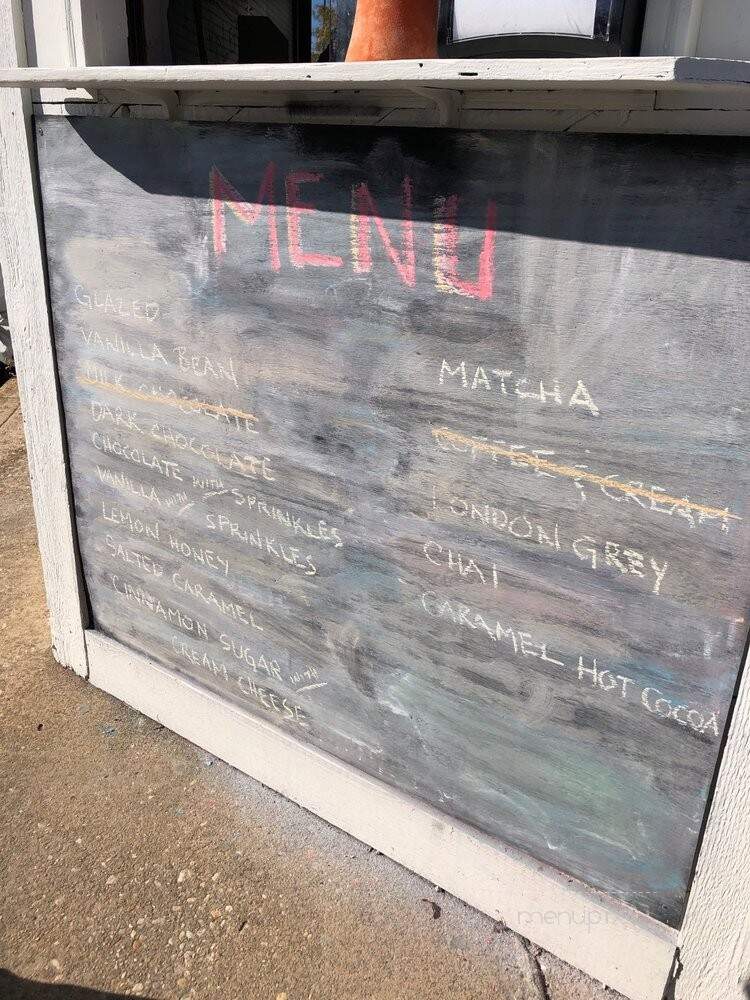 MENU
GLAZED
VANILLA BEAN
MILK CHOCOLATE
DARK CHOCOLATE
CHOCOLATE WITH SPRINKLES
VANILLA WITH SPRINKLES
LEMON HONEY
SALTED CARAMEL
CINNAMON SUGAR WITH
CREAM CHEESE
MATCHA
COFFEE & CREAM
LONDON GREY
CHAI
CARAMEL HOT COCOA